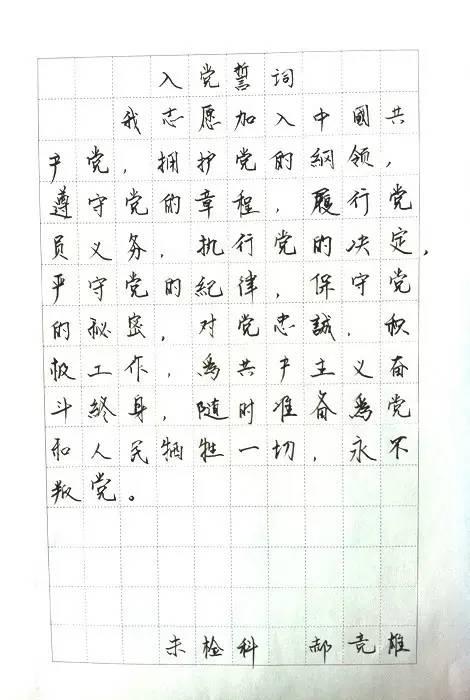 入党誓词
我志愿加入中國共
产党，拥护党的綱领，
遵守党的章程，履行党
员义务，执行党的决定，
严守党的纪律，保守党
的秘密，对党忠誠，积
极工作，為共产主义奋
斗終身，随时准备為党
和人民牺牲一切，永不
叛党。
未检科 郝竞雄